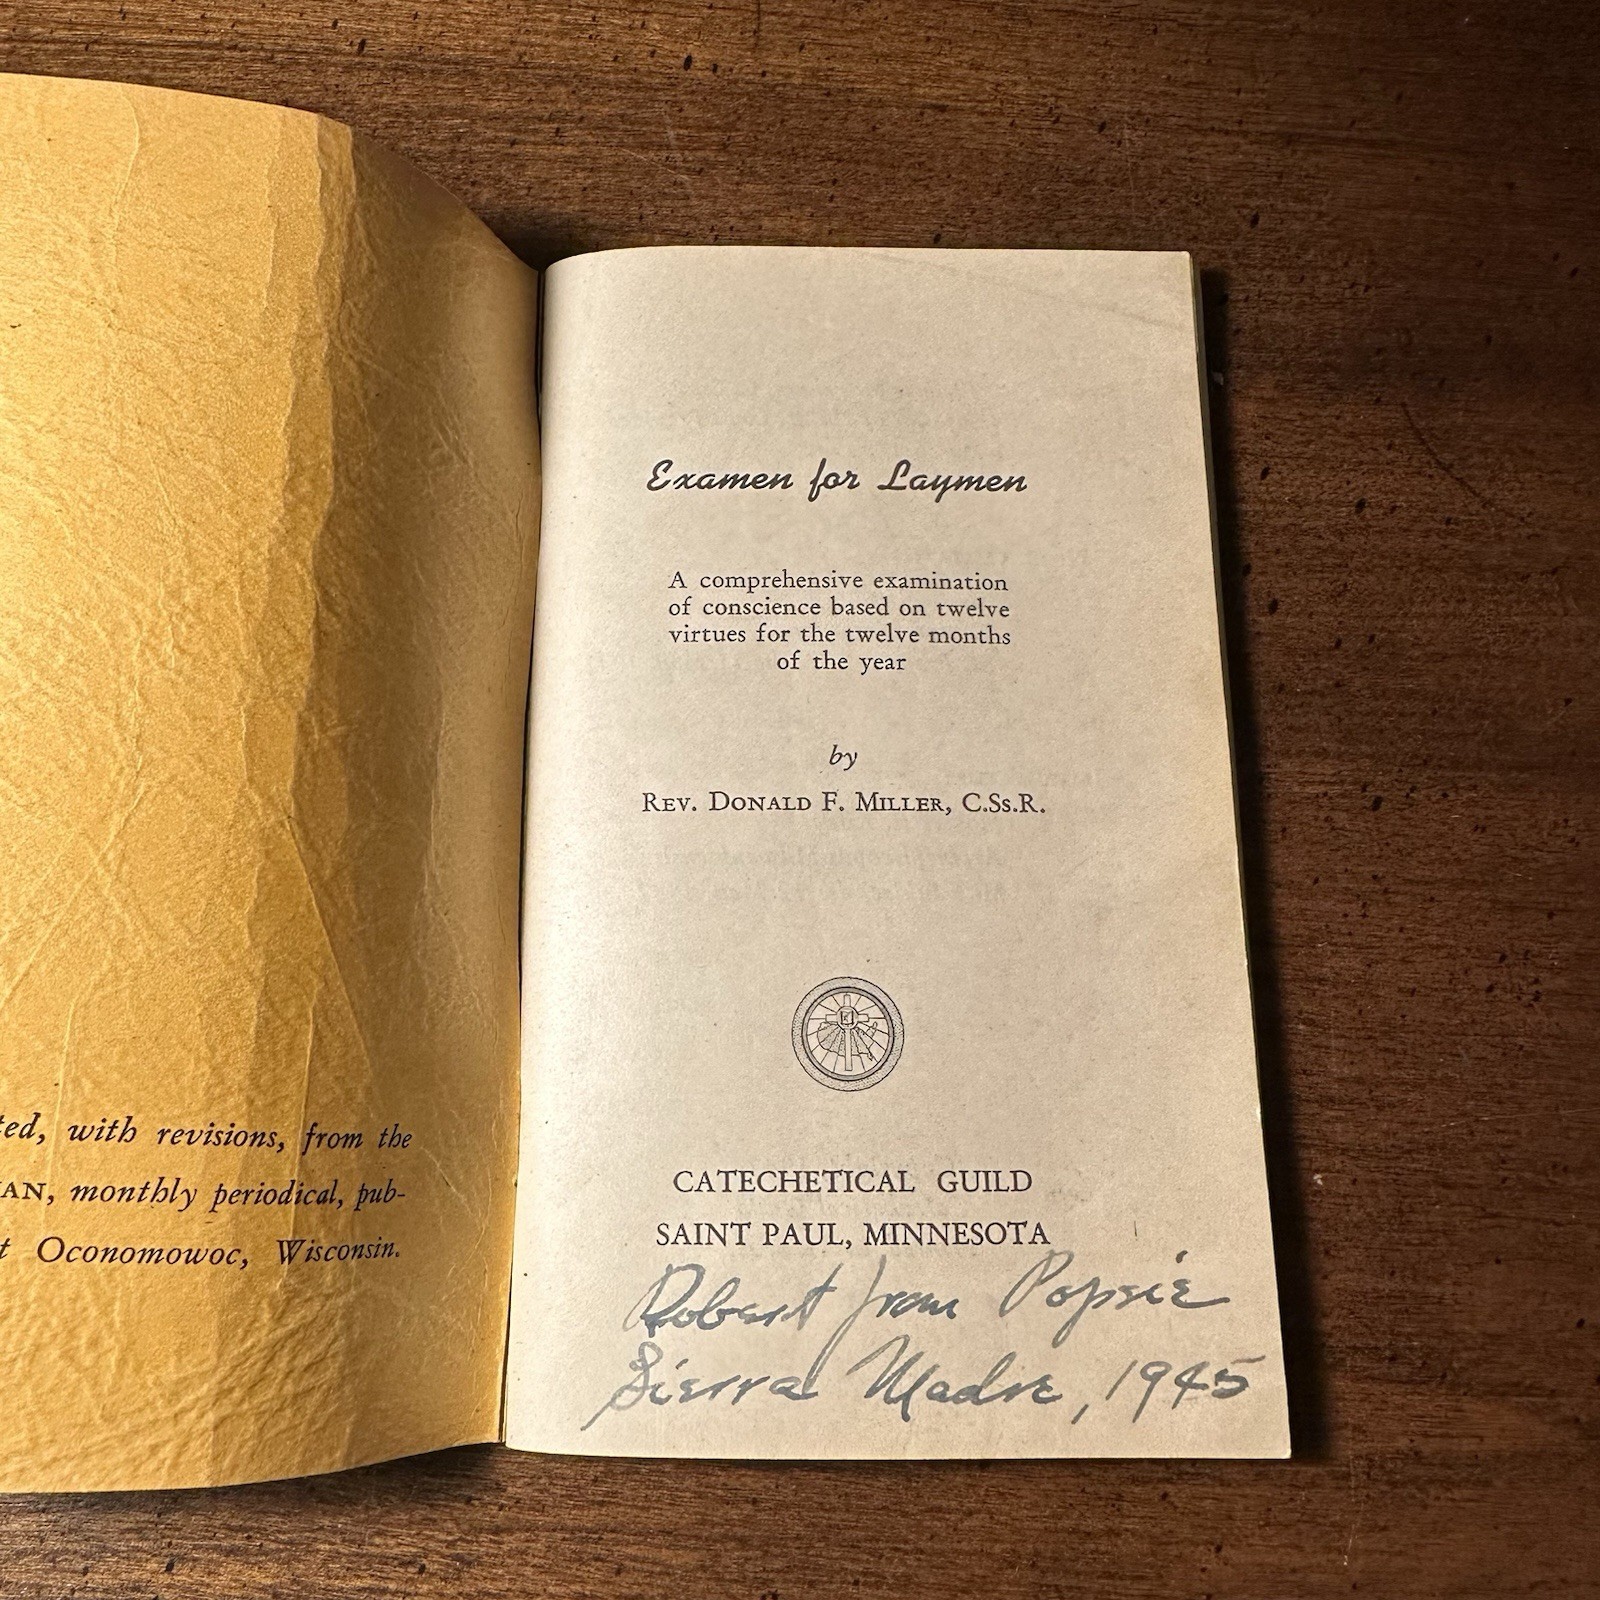 ted, with revisions, from the
AN, monthly periodical, pub-
t Oconomowoc, Wisconsin.
Examen for Laymen
A comprehensive examination
of conscience based on twelve
virtues for the twelve months
of the year
by
REV. DONALD F. MILLER, C.SS.R.
CATECHETICAL GUILD
SAINT PAUL, MINNESOTA
Robert from Popsie
Sierra Madre, 1945